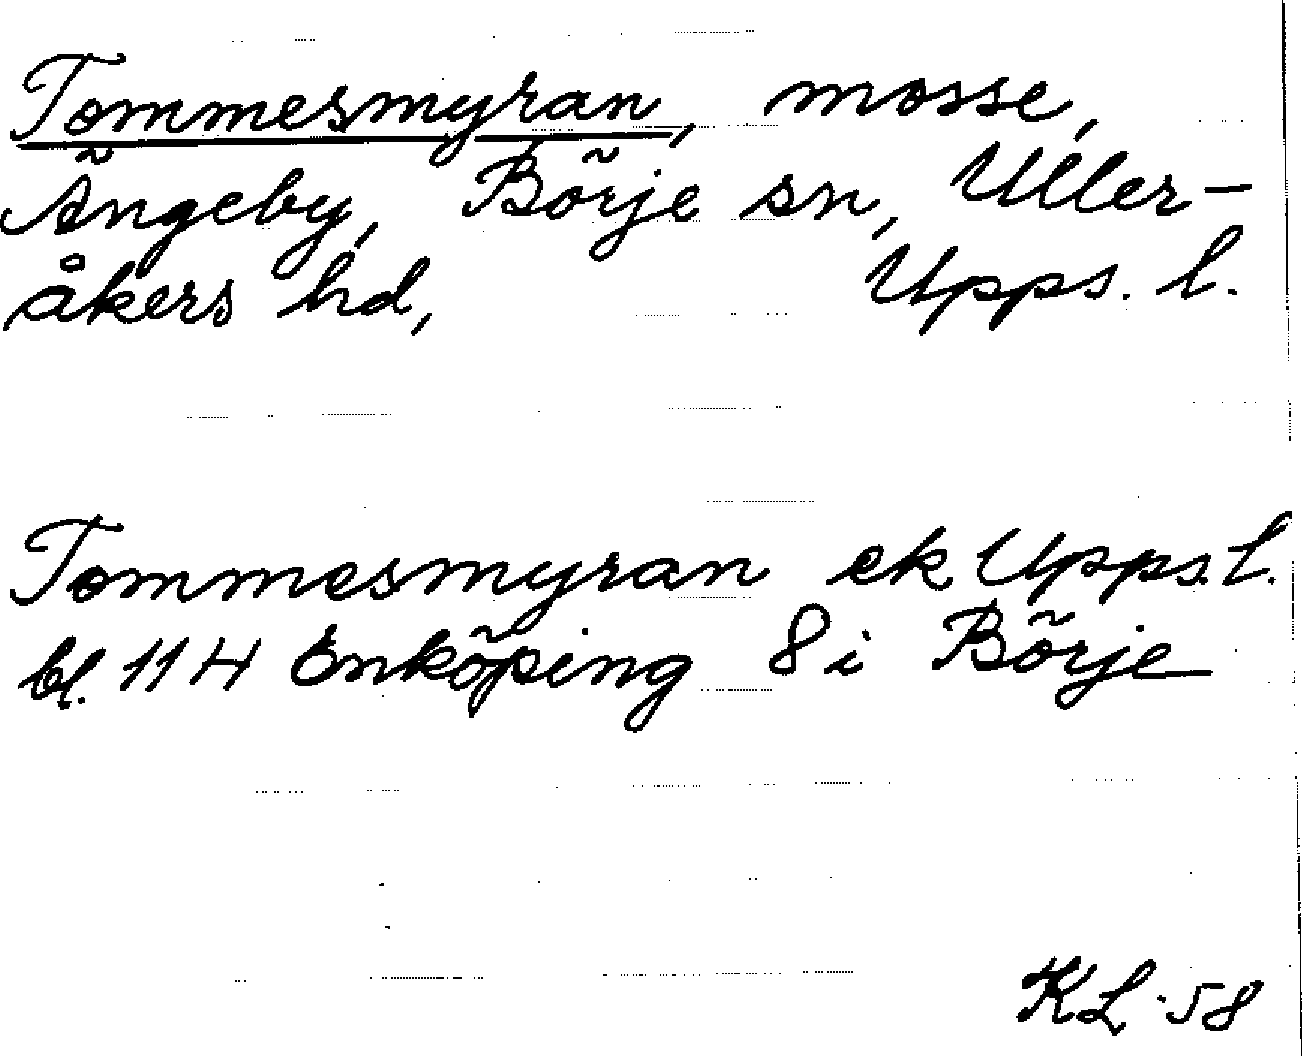 Tommesmyran, mosse,
Ängeby, Börje sn, Uller-
åkers hd, Upps. l.
Tommesmyran ek Upps. l.
bl. 114 Enköping 8 i Börje
KL·58